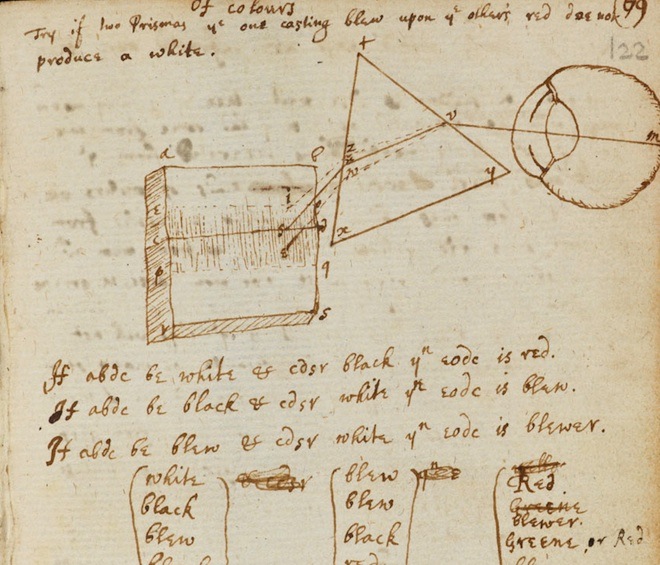 Of colours
99
Try if two Prismas ye one casting blew upon ye others red doe not
produce a white.
122
t
v
m
y
x
z
w
a
p
q
s
r
If abdc be white & cdsr black yn eodc is red.
If abdc be black & cdsr white yn eodc is blew.
If abdc be blew & cdsr white yn eodc is blewer.
white blew Red
black blew Greene
blewer.
blew black Greene, or Red
red